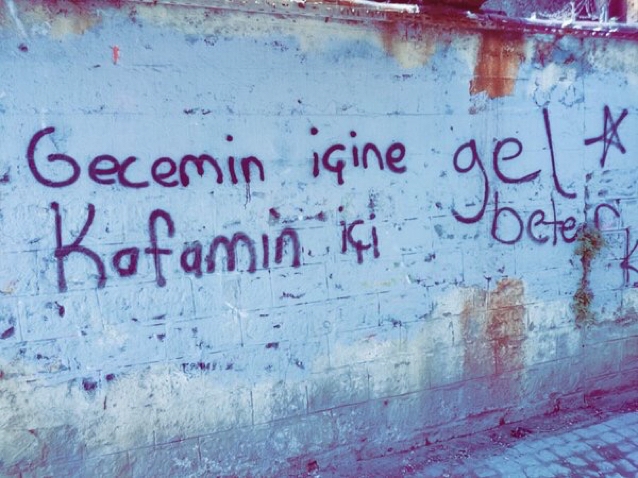 Gecemin içine gel
Kafamin içi beter
K